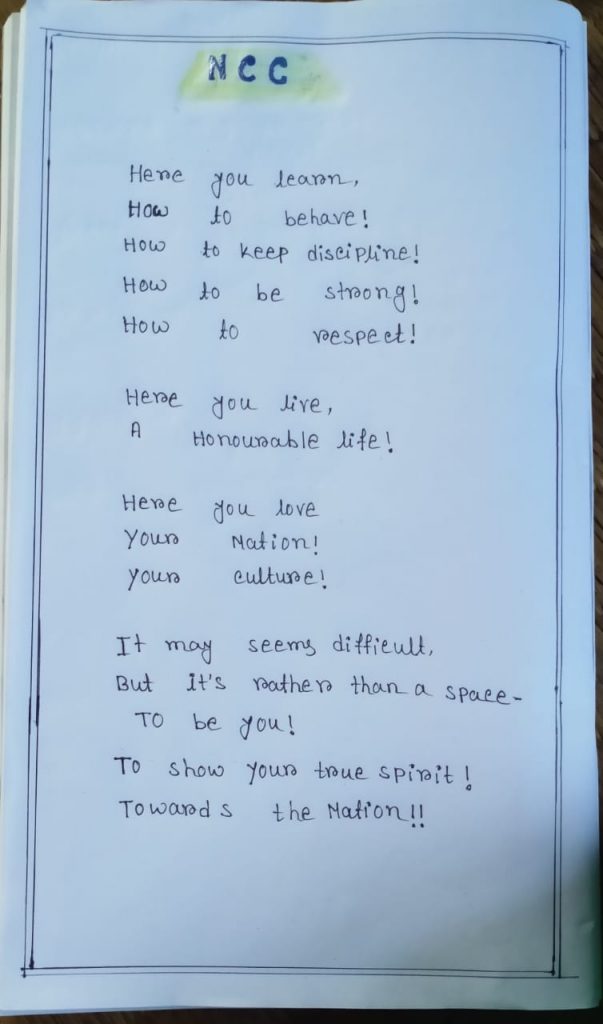 NCC
Here you learn,
How to behave!
How to keep discipline!
How to be strong!
How to respect!
Here you live,
A Honourable life!
Here you love
Your Nation!
Your culture!
It may seems difficult,
But it's rather than a space-
To be you!
To show your true spirit!
Towards the Nation!!